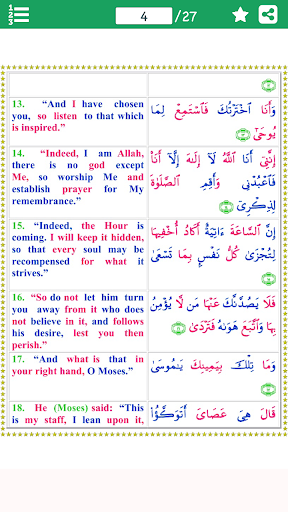 1
2
3
4 /27
13. “And I have chosen
you, so listen to that which
is inspired.”
وَأَنَا ٱخْتَرْتُكَ فَٱسْتَمِعْ لِمَا
يُوحَىٰٓ
14. “Indeed, I am Allah,
there is no god except
Me, so worship Me and
establish prayer for My
remembrance.”
إِنَّنِىٓ أَنَا ٱللَّهُ لَآ إِلَـٰهَ إِلَّآ أَنَا۠
فَٱعْبُدْنِى وَأَقِمِ ٱلصَّلَوٰةَ
لِذِكْرِىٓ
15. “Indeed, the Hour is
coming. I will keep it hidden,
so that every soul may be
recompensed for what it
strives.”
إِنَّ ٱلسَّاعَةَ ءَاتِيَةٌ أَكَادُ أُخْفِيهَا
لِتُجْزَىٰ كُلُّ نَفْسٍۭ بِمَا تَسْعَىٰ
16. “So do not let him turn
you away from it who does
not believe in it, and follows
his desire, lest you then
perish.”
فَلَا يَصُدَّنَّكَ عَنْهَا مَن لَّا يُؤْمِنُ
بِهَا وَٱتَّبَعَ هَوَىٰهُ فَتَرْدَىٰ
17. “And what is that in
your right hand, O Moses.”
وَمَا تِلْكَ بِيَمِينِكَ يَـٰمُوسَىٰ
18. He (Moses) said: “This
is my staff, I lean upon it,
قَالَ هِىَ عَصَاىَ أَتَوَكَّؤُا۟